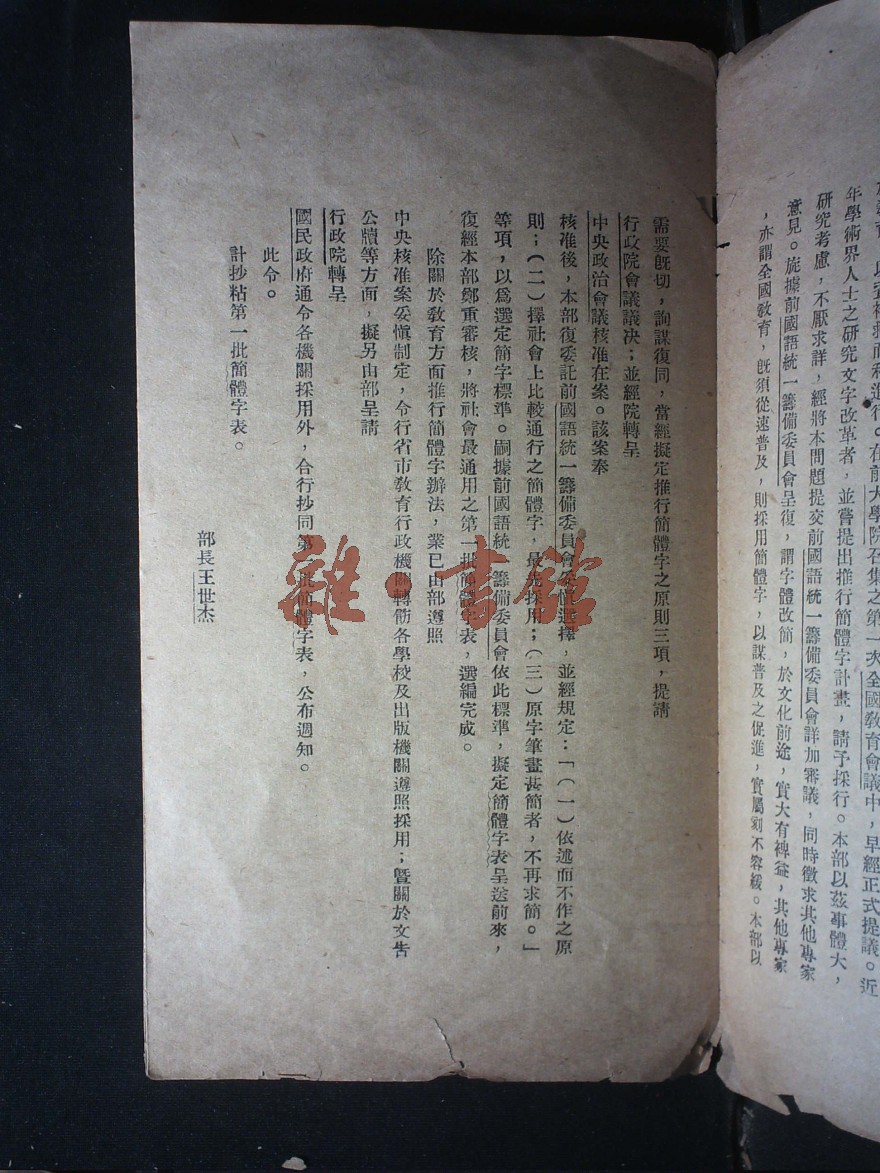 年學術界人士之研究文字改革者，並嘗提出推行簡體字計畫，請予採行。本部以茲事體大，
研究考慮，不厭求詳，經將本問題提交前國語統一籌備委員會詳加審議，同時徵求其他專家
意見。旋據前國語統一籌備委員會呈復，謂字體改簡，於文化前途，實大有裨益，其他專家
，亦謂全國教育，旣須從速普及，則採用簡體字，以謀普及之促進，實屬刻不容緩。本部以
需要旣切，詢謀復同，當經擬定推行簡體字之原則三項，提請
行政院會議議决；並經院轉呈
中央政治會議核准在案。該案奉
核准後，本部復委託前國語統一籌備委員會妥愼選擇，並經規定：「（一）依述而不作之原
則；（二）擇社會上比較通行之簡體字，最先採用；（三）原字筆畫甚簡者，不再求簡。」
等項，以爲選定簡字標準。嗣據前國語統一籌備委員會依此標準，擬定簡體字表呈送前來，
復經本部鄭重審核，將社會最通用之第一批簡體字表，選編完成。
除關於敎育方面推行簡體字辦法，業已由部遵照
中央核准案妥愼制定，令行省市敎育行政機關轉飭各學校及出版機關遵照採用；暨關於文告
公牘等方面，擬另由部呈請
行政院轉呈
國民政府通令各機關採用外，合行抄同第一批簡體字表，公布週知。
此令。
計抄粘第一批簡體字表。
部長王世杰
雜·書館